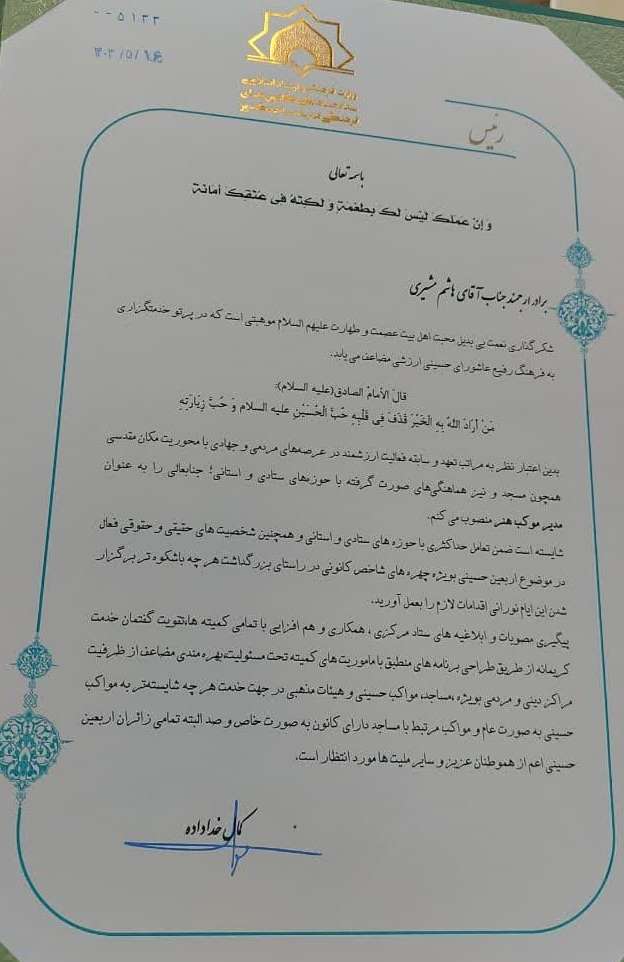 --۵۱۳۳
۱۴۰۳/۵/۱۶
وزارت فرهنگ و ارشاد اسلامی
رئیس
باسمه تعالی
وَ اِنّ عَمَلَکَ لَیْسَ لَکَ بِطُعْمَةٍ وَ لَکِنَّهُ فی عُنُقِکَ اَمانَة
برادر ارجمند جناب آقای هاشم مشیری
شکرگذاری نعمت بی بدیل محبت اهل بیت عصمت و طهارت علیهم السلام موهبتی است که در پرتو خدمتگزاری
به فرهنگ رفیع عاشورای حسینی ارزشی مضاعف می یابد.
قالَ الأمامُ الصادق(علیه السلام):
مَنْ أرَادَ اللهُ بِهِ الْخَیْرَ قَذَفَ فِی قَلْبِهِ حُبَّ الْحُسَیْنِ علیه السلام وَ حُبَّ زِیَارَتِهِ
بدین اعتبار نظر به مراتب تعهد و سابقه فعالیت ارزشمند در عرصه‌های مردمی و جهادی با محوریت مکان مقدسی
همچون مسجد و نیز هماهنگی‌های صورت گرفته با حوزه‌های ستادی و استانی؛ جنابعالی را به عنوان
مدیر موکب هنر منصوب می کنم.
شایسته است ضمن تعامل حداکثری با حوزه های ستادی و استانی و همچنین شخصیت های حقیقی و حقوقی فعال
در موضوع اربعین حسینی بویژه چهره های شاخص کانونی در راستای بزرگداشت هر چه باشکوه تر برگزار
شدن این ایام نورانی اقدامات لازم را بعمل آورید.
پیگیری مصوبات و ابلاغیه های ستاد مرکزی ، همکاری و هم افزایی با تمامی کمیته ها،تقویت گفتمان خدمت
کریمانه از طریق طراحی برنامه های منطبق با ماموریت های کمیته تحت مسئولیت،بهره مندی مضاعف از ظرفیت
مراکز دینی و مردمی بویژه ،مساجد، مواکب حسینی و هیئات مذهبی در جهت خدمت هر چه شایسته‌تر به مواکب
حسینی به صورت عام و مواکب مرتبط با مساجد دارای کانون به صورت خاص و صد البته تمامی زائران اربعین
حسینی اعم از هموطنان عزیز و سایر ملیت ها مورد انتظار است.
کمال خداداده